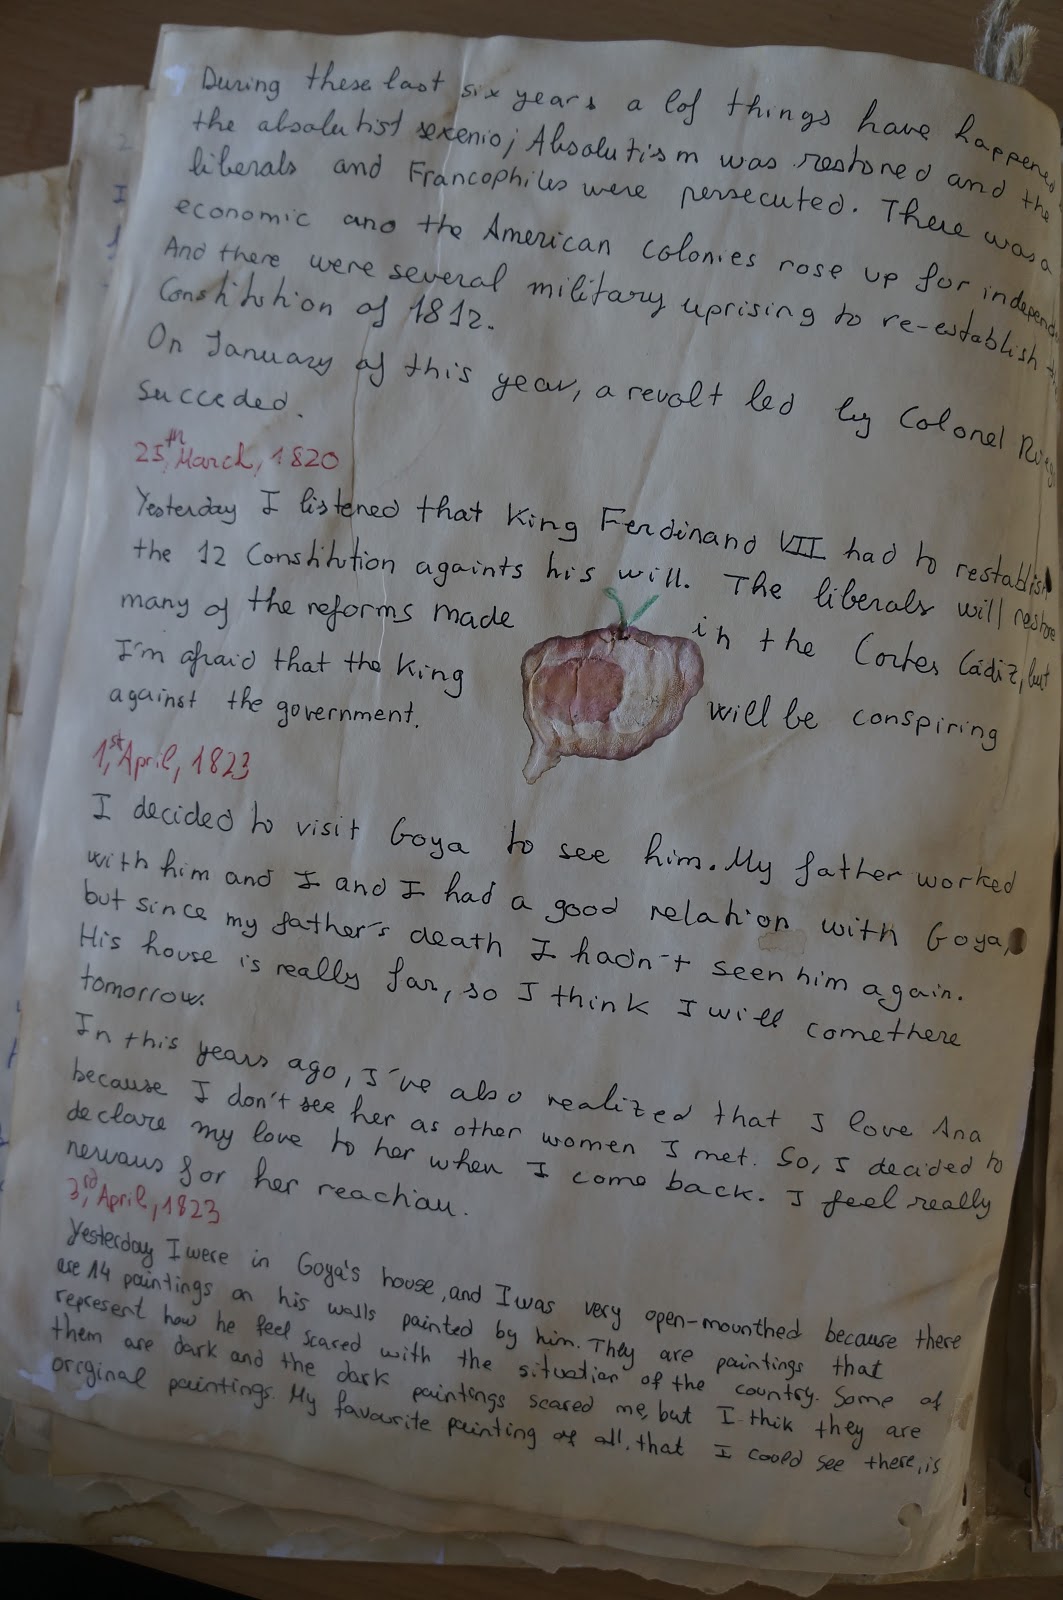 During these last six years a lot things have happened
the absolutist sexenio; Absolutism was restored and the
liberals and Francophiles were persecuted. There was a
economic and the American colonies rose up for independ
And there were several military uprising to re-establish
Constitution of 1812.
On January of this year, a revolt led by Colonel
succeded.
25th, March, 1820
Yesterday I listened that King Ferdinand VII had to restablish
the 12 Constitution againts his will. The liberals will restore
many of the reforms made in the Cortes Cádiz, but
I'm afraid that the King will be conspiring
against the government.
1,st April, 1823
I decided to visit Goya to see him. My father worked
with him and I and I had a good relation with Goya,
but since my father's death I hadn't seen him again.
His house is really far, so I think I will comethere
tomorrow.
In this years ago, I've also realized that I love Ana
because I don't see her as other women I met. So, I decided to
declare my love to her when I come back. I feel really
nervous for her reaction.
3,rd April, 1823
Yesterday I were in Goya's house, and I was very open-mounthed because there
are 14 paintings on his walls painted by him. They are paintings that
represent how he feel scared with the situation of the country. Some of
them are dark and the dark paintings scared me, but I thik they are
original paintings. My favourite painting of all, that I could see there, is